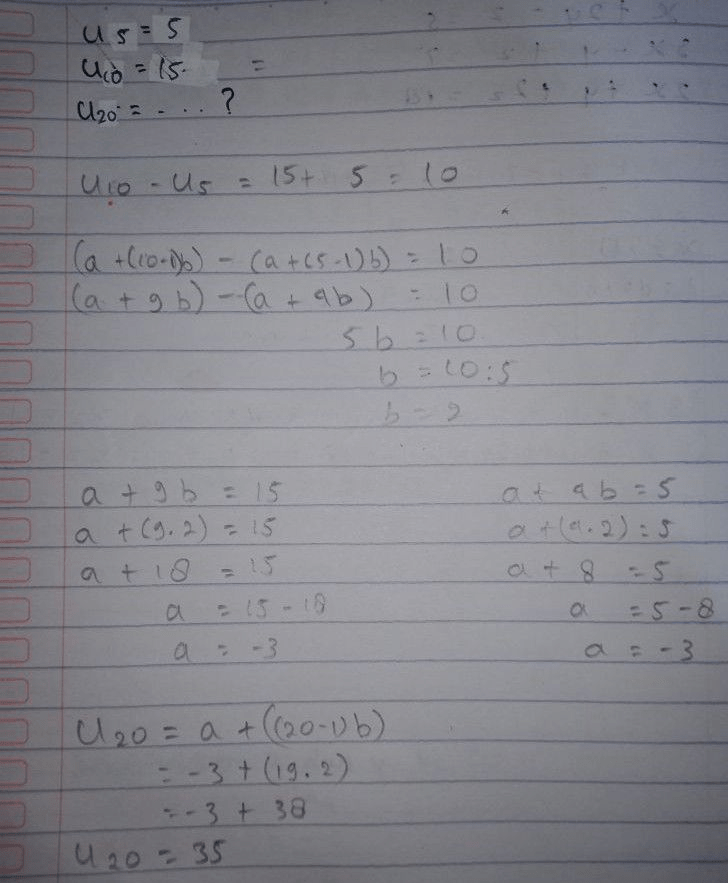 U5 = 5
U10 = 15. =
U20 = - ... ?
U10 - U5 = 15 + 5 = 10
(a + (10-1)b) - (a + (5-1)b) = 10
(a + 9b) - (a + 4b) = 10
5b = 10
b = 10:5
b = 2
a + 9b = 15 a + 4b = 5
a + (9.2) = 15 a + (4.2) = 5
a + 18 = 15 a + 8 = 5
a = 15 - 18 a = 5 - 8
a = -3 a = -3
U20 = a + ((20-1)b)
= -3 + (19.2)
= -3 + 38
U20 = 35